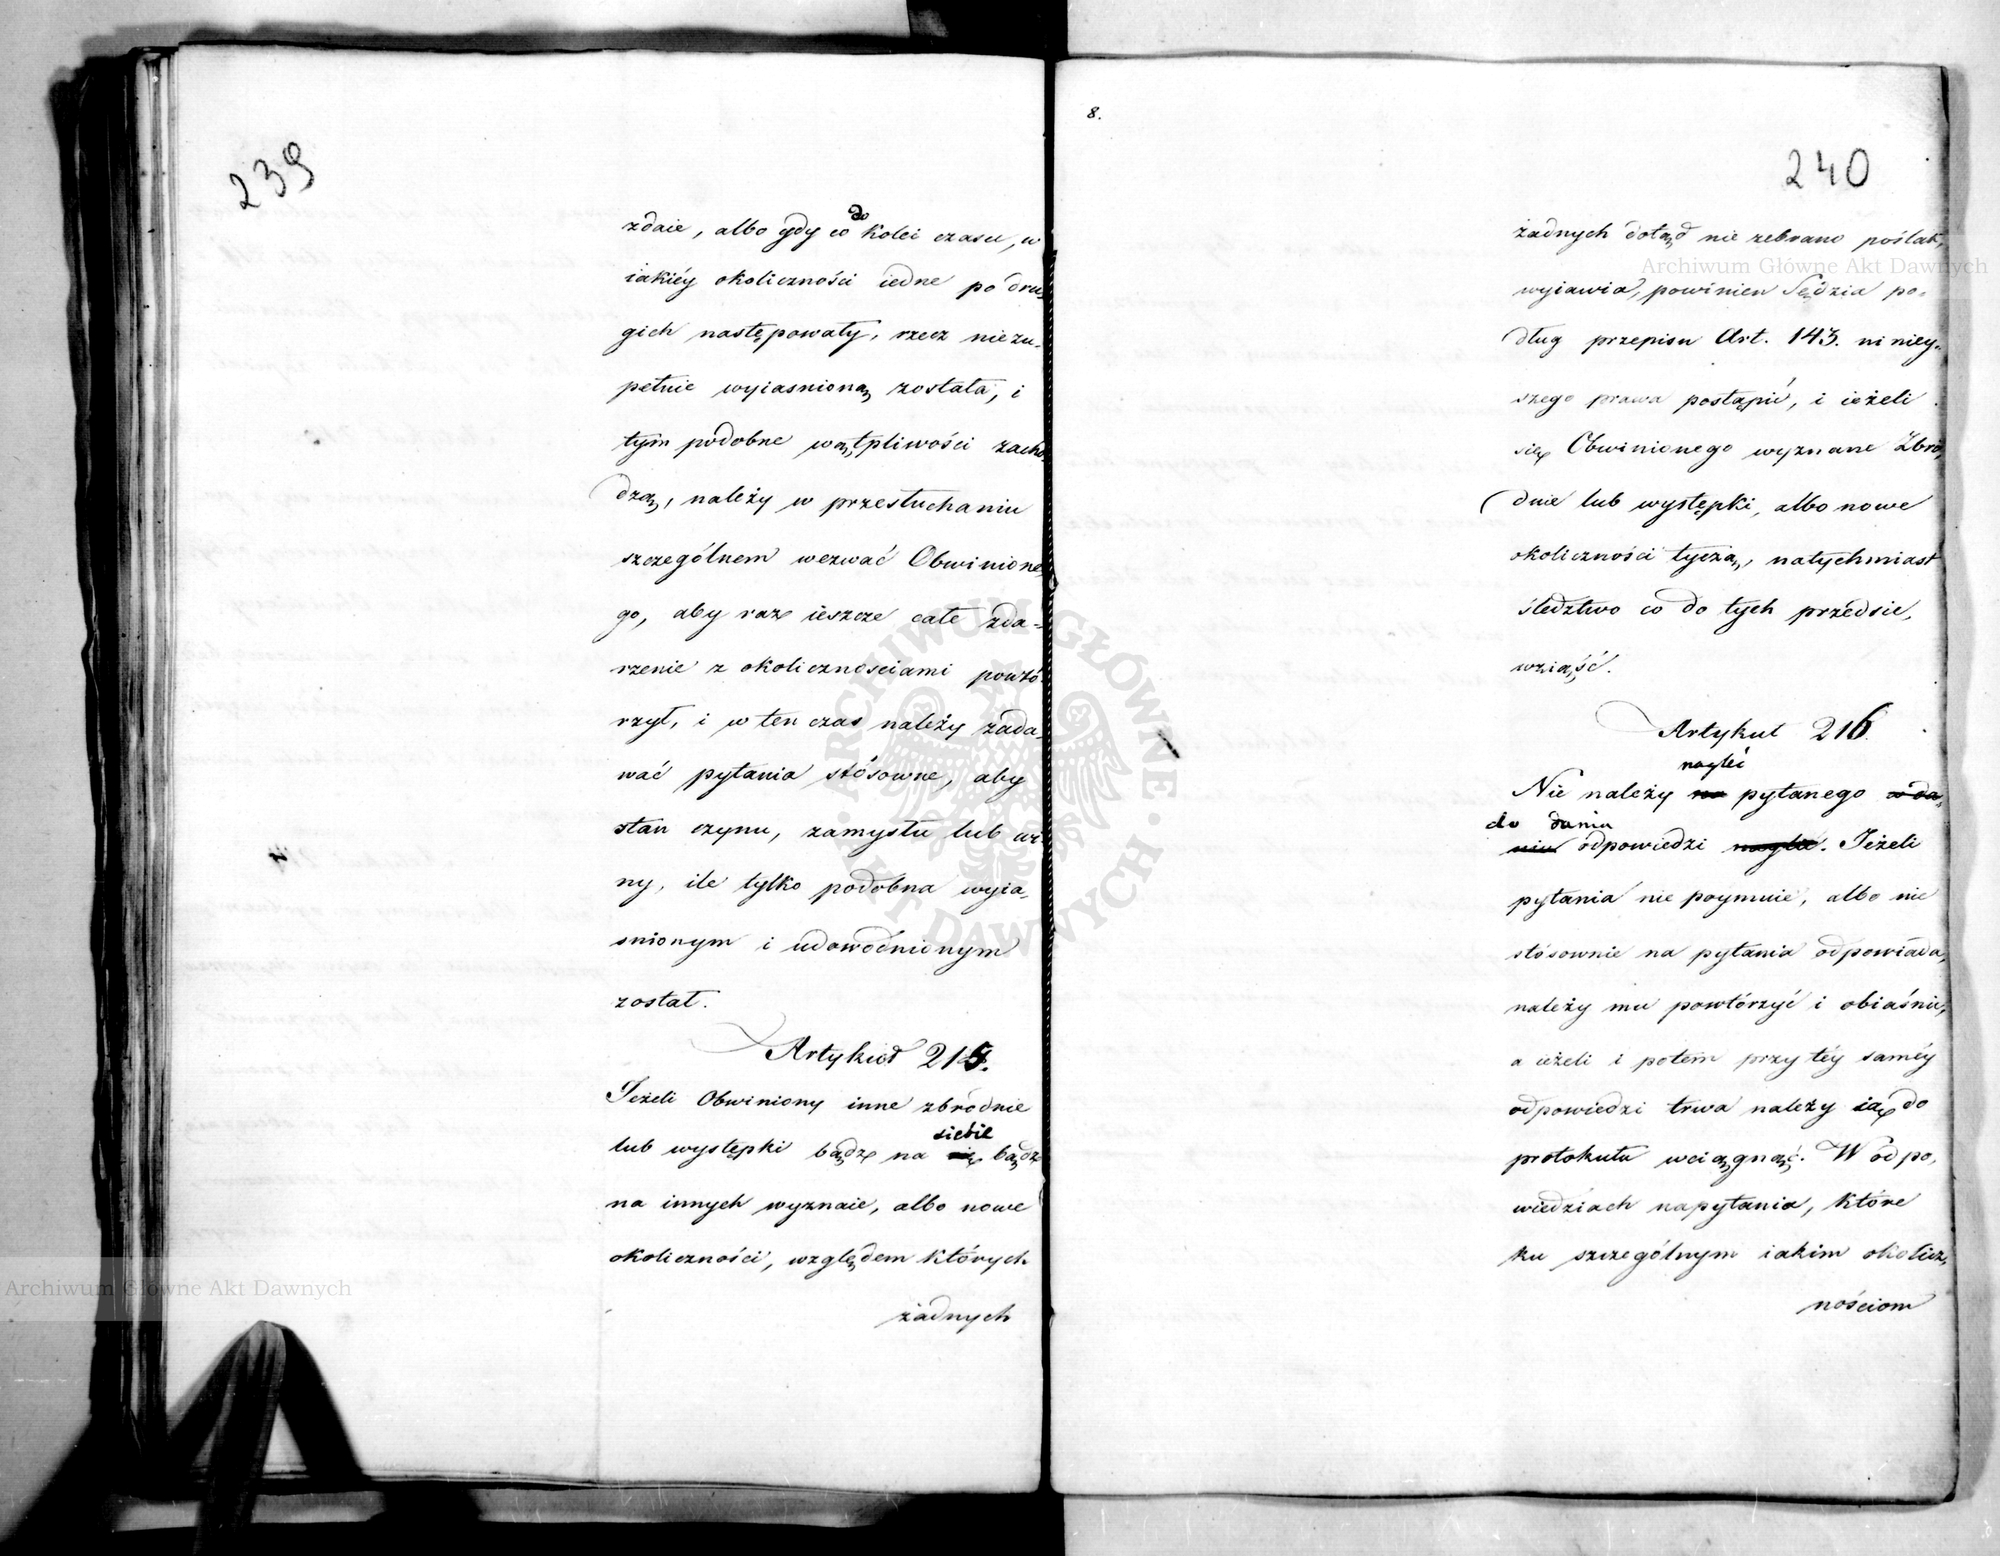 239
zdaie, albo gdy co do kolei czasu, w
iakiéy okoliczności iedne po dru-
gich następowały, rzecz niezu-
pełnie wyiasnioną została, i
tym podobne wątpliwości zacho
dzą, należy w przesłuchaniu
szczególnem wezwać Obwinione
go, aby raz ieszcze całe zda-
rzenie z okolicznosciami powtó
rzył, i w ten czas należy zada-
wać pytania stósowne, aby
stan czynu, zamysłu lub wi-
ny, ile tylko podobna wyia-
snionym i udowodnionym
został.
Artykuł 215.
Jeżeli Obwiniony inne zbrodnie
lub występki bądź na się siebie bądz
na innych wyznaie, albo nowe
okoliczności, względem których
żadnych
8.
240
żadnych dotąd nie zebrano poślak,
wyiawia, powinien Sędzia po-
dług przepisu Art. 143. niniey-
szego prawa postąpić, i ieżeli
się Obwinionego wyznane Zbro,
dnie lub występki, albo nowe
okoliczności tyczą, natychmiast
śledztwo co do tych przedsie,
wziąść.
Artykuł 216.
naglić
Nie należy na pytanego z da,
do dania
niu odpowiedzi nagle. Jeżeli
pytania nie poymuie, albo nie
stósownie na pytania odpowiada,
należy mu powtórzyć i obiaśnić,
a ieżeli i potem przy téy saméy
odpowiedzi trwa należy ią do
protokułu wciągnąć. W odpo,
wiedziach na pytania, które
ku szczególnym iakim okolicz,
nościom
Archiwum Główne Akt Dawnych
Archiwum Główne Akt Dawnych
ARCHIWUM GŁÓWNE AKT DAWNYCH